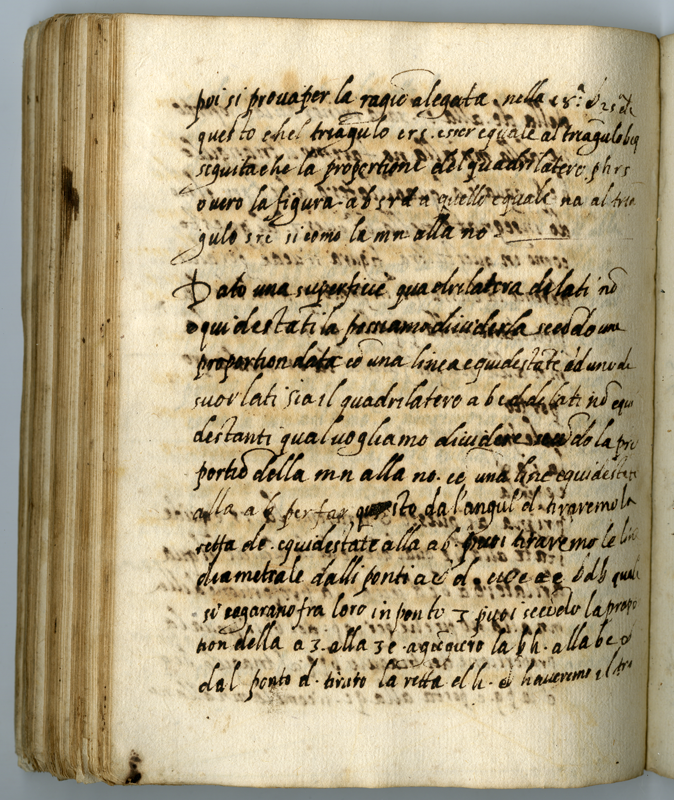 poi si prova per la ragiõ alegata nella 28ª & 25
questo che'l triãgulo ers esser equale al triãgulo
seguita che la proportione del quadrilatero phrs
overo la figura abrd a quello equale na al triã
gulo sre si como la mn alla no
Dato una superficie quadrilatera de lati nõ
equidestãti la possiamo dividerla secõdo una
proportion data cõ una linea equidestãte ad uno de
suoi lati sia il quadrilatero abcd de lati nõ equi
destanti qual vogliamo dividere secõdo la pro
portiõ della mn alla no cõ una linea equidestãte
alla ab per far questo dal angul d tiraremo la
retta de equidestãte alla ab puoi tiraremo le lin
diametrale dalli ponti a & d cioe ae & db quale
si segarano fra loro in ponto 3 puoi secõdo la propor
tion della a3 alla 3e agiũgiero la bh alla be &
dal ponto d tirato la retta el h & haveremo il tri